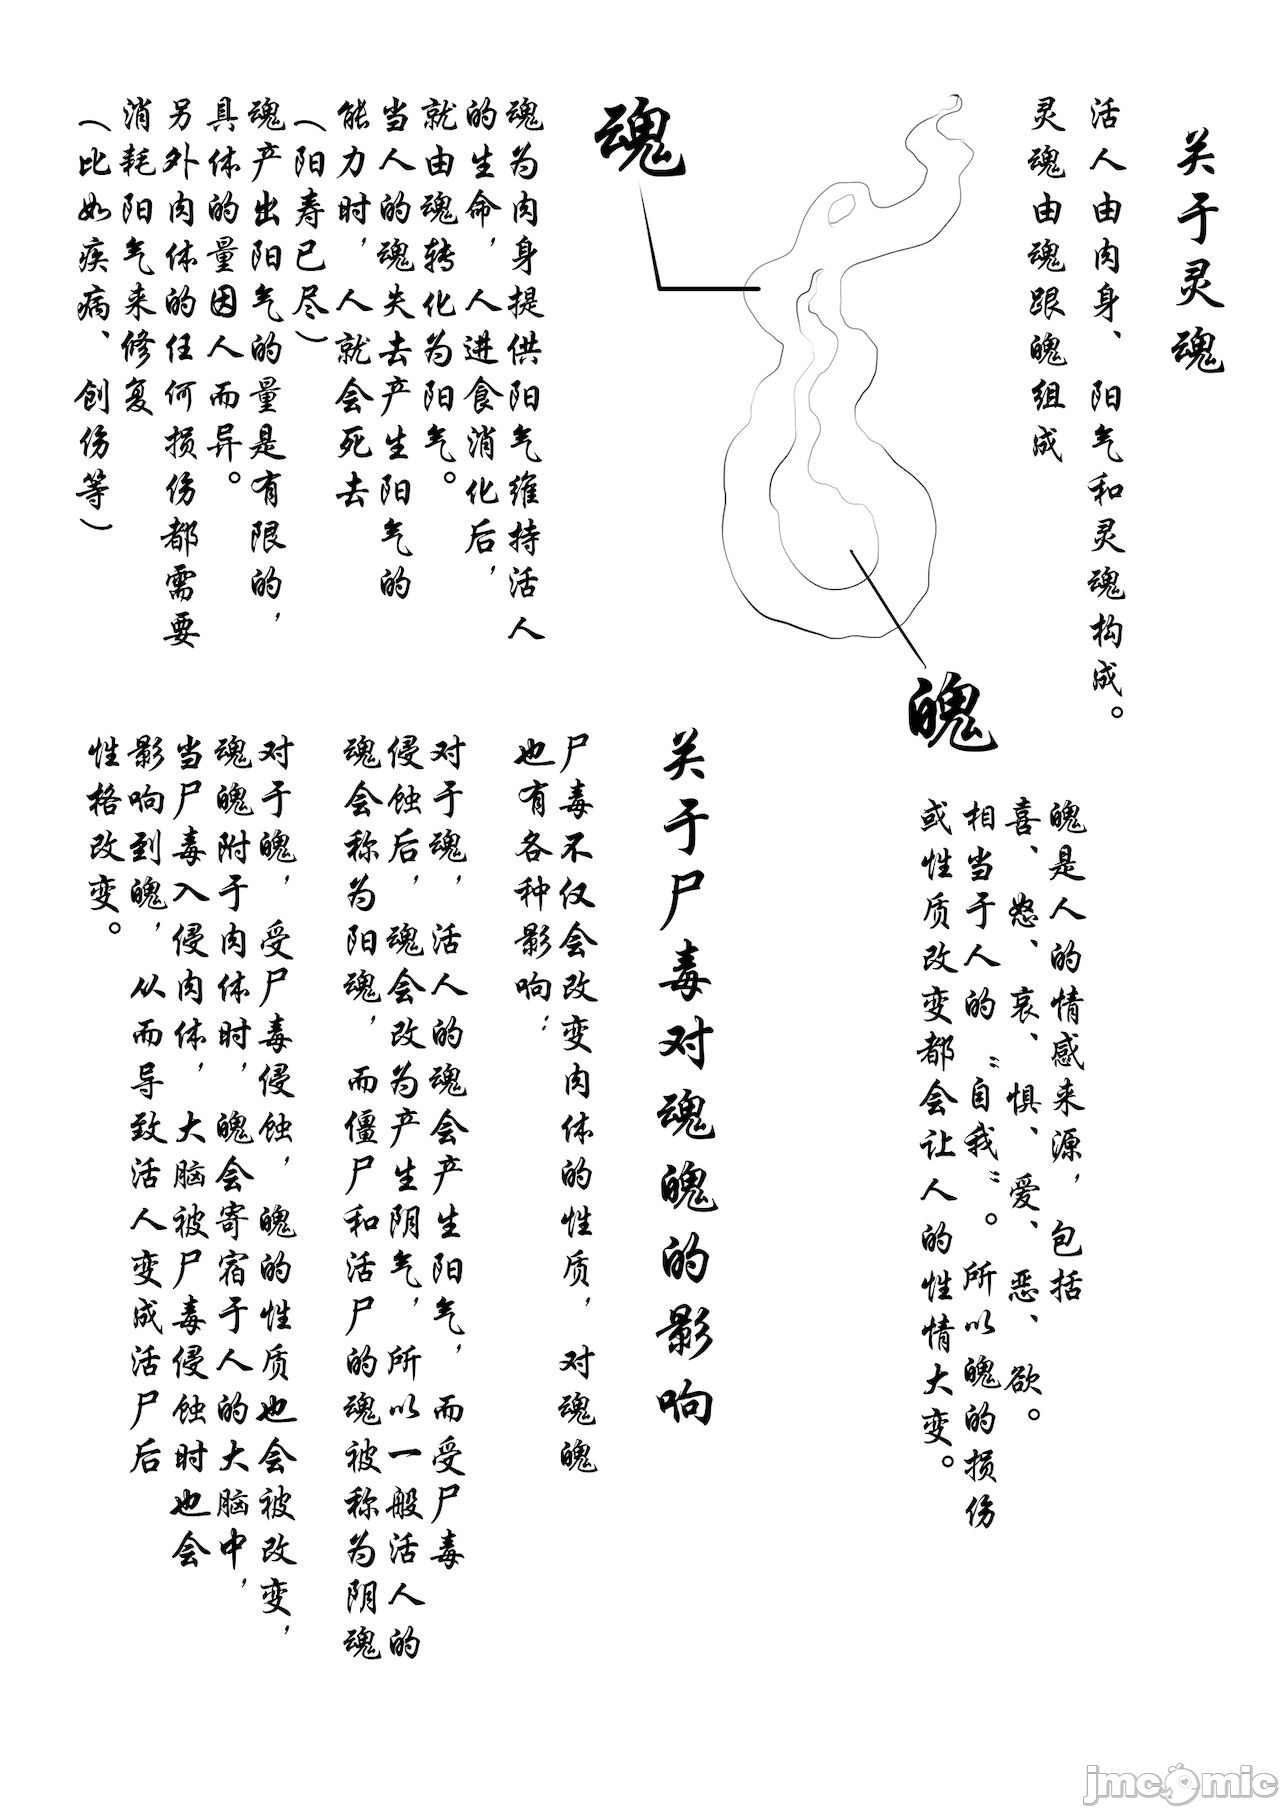 关于灵魂
活人由肉身、阳气和灵魂构成。
灵魂由魂跟魄组成
魂
魂为肉身提供阳气维持活人
的生命，人进食消化后，
就由魂转化为阳气。
当人的魂失去产生阳气的
能力时，人就会死去
（阳寿已尽）
魂产出阳气的量是有限的，
具体的量因人而异。
另外肉体的任何损伤都需要
消耗阳气来修复
（比如疾病、创伤等）
魄
魄是人的情感来源，包括
喜、怒、哀、惧、爱、恶、欲。
相当于人的“自我”。所以魄的损伤
或性质改变都会让人的性情大变。
关于尸毒对魂魄的影响
尸毒不仅会改变肉体的性质，对魂魄
也有各种影响：
对于魂，活人的魂会产生阳气，而受尸毒
侵蚀后，魂会改为产生阴气，所以一般活人的
魂会称为阳魂，而僵尸和活尸的魂被称为阴魂
对于魄，受尸毒侵蚀，魄的性质也会被改变，
魂魄附于肉体时，魄会寄宿于人的大脑中，
当尸毒入侵肉体，大脑被尸毒侵蚀时也会
影响到魄，从而导致活人变成活尸后
性格改变。
jmcomic